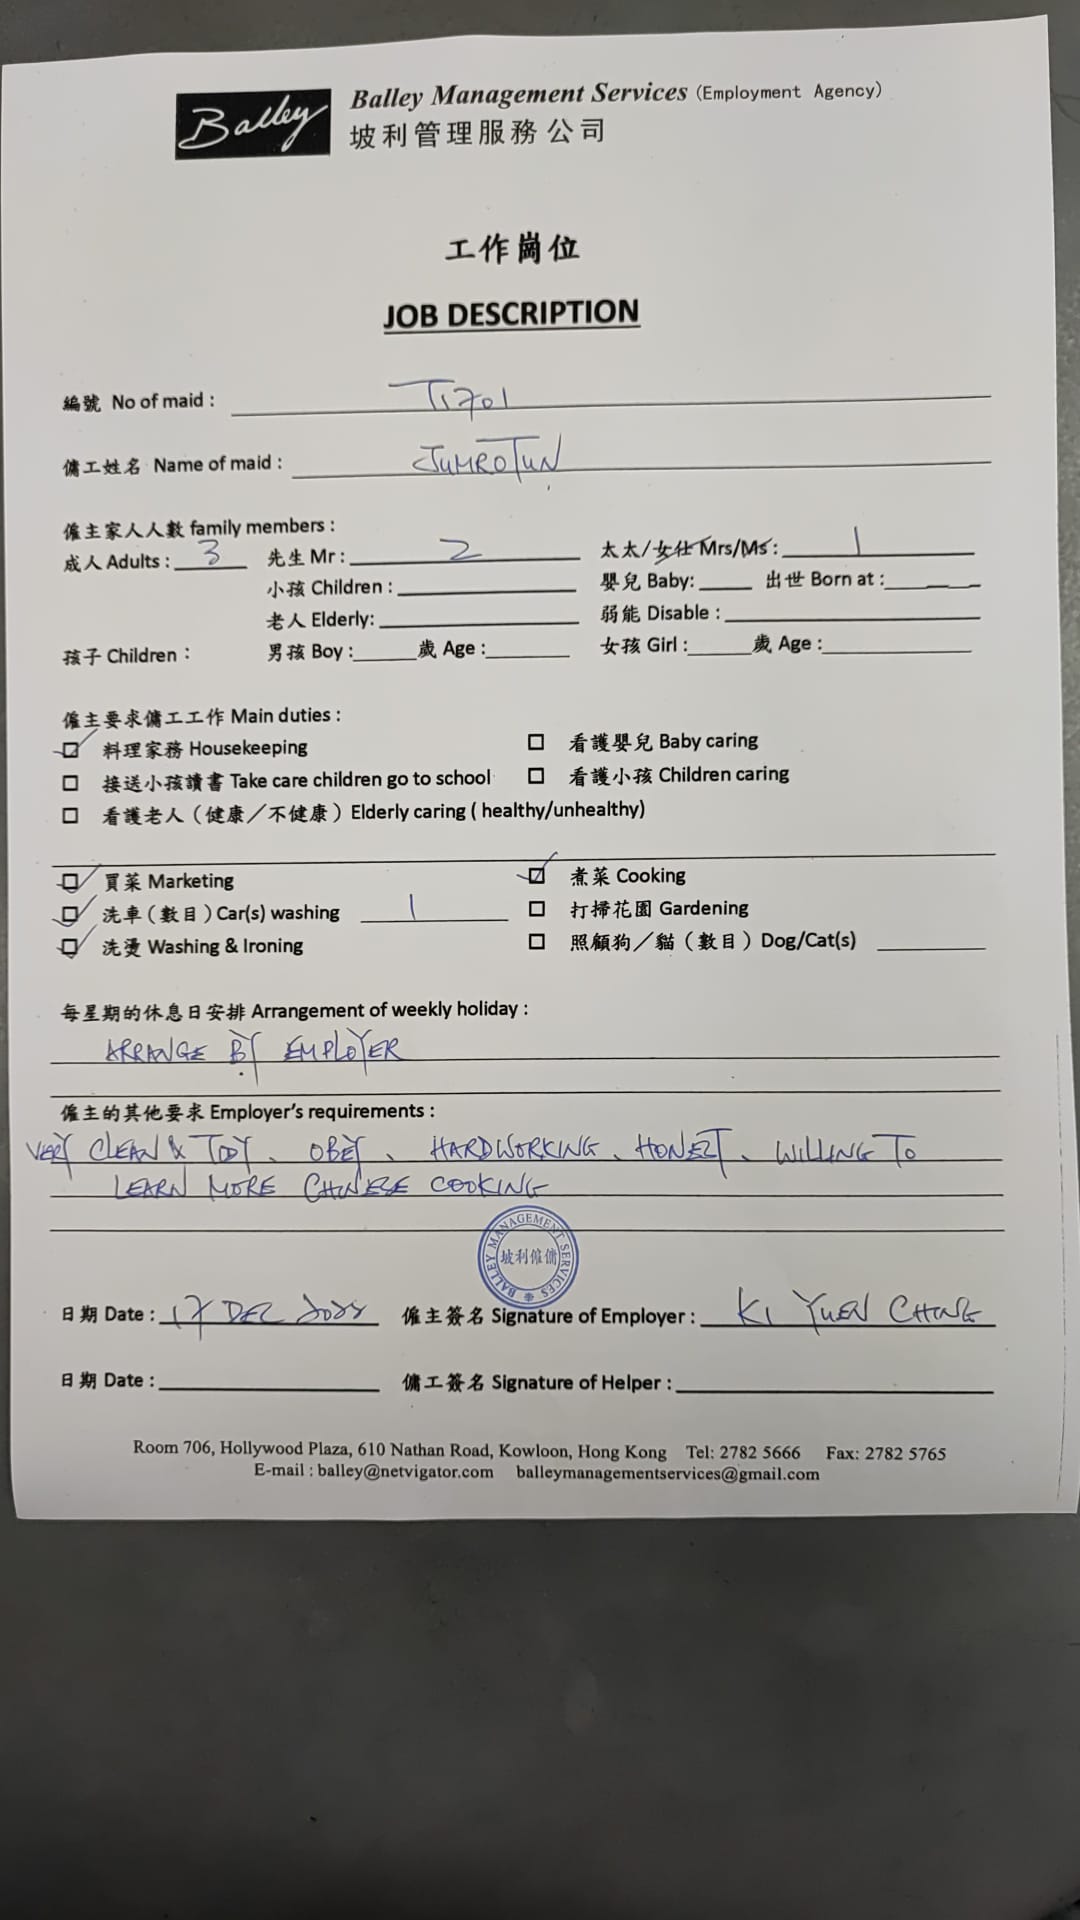 Balley
Balley Management Services (Employment Agency)
坡利管理服務公司
工作崗位
JOB DESCRIPTION
編號 No of maid : TS701
傭工姓名 Name of maid : JUMROTUN
僱主家人人數 family members :
成人 Adults : 3 先生 Mr : 2 太太/女仕 Mrs/Ms : 1
小孩 Children : 嬰兒 Baby: 出世 Born at :
老人 Elderly: 弱能 Disable :
孩子 Children : 男孩 Boy : 歲 Age : 女孩 Girl : 歲 Age :
僱主要求傭工工作 Main duties :
料理家務 Housekeeping 看護嬰兒 Baby caring
接送小孩讀書 Take care children go to school 看護小孩 Children caring
看護老人（健康／不健康）Elderly caring ( healthy/unhealthy)
買菜 Marketing 煮菜 Cooking
洗車（數目）Car(s) washing 1 打掃花園 Gardening
洗燙 Washing & Ironing 照顧狗／貓（數目）Dog/Cat(s)
每星期的休息日安排 Arrangement of weekly holiday :
ARRANGE BY EMPLOYER
僱主的其他要求 Employer's requirements :
VERY CLEAN & TIDY、OBEY、HARDWORKING、HONEST、WILLING TO
LEARN MORE CHINESE COOKING
BALLEY MANAGEMENT SERVICES
坡利僱傭
日期 Date : 17 DEC 2022 僱主簽名 Signature of Employer : KI YUEN CHING
日期 Date : 傭工簽名 Signature of Helper :
Room 706, Hollywood Plaza, 610 Nathan Road, Kowloon, Hong Kong Tel: 2782 5666 Fax: 2782 5765
E-mail : balley@netvigator.com balleymanagementservices@gmail.com